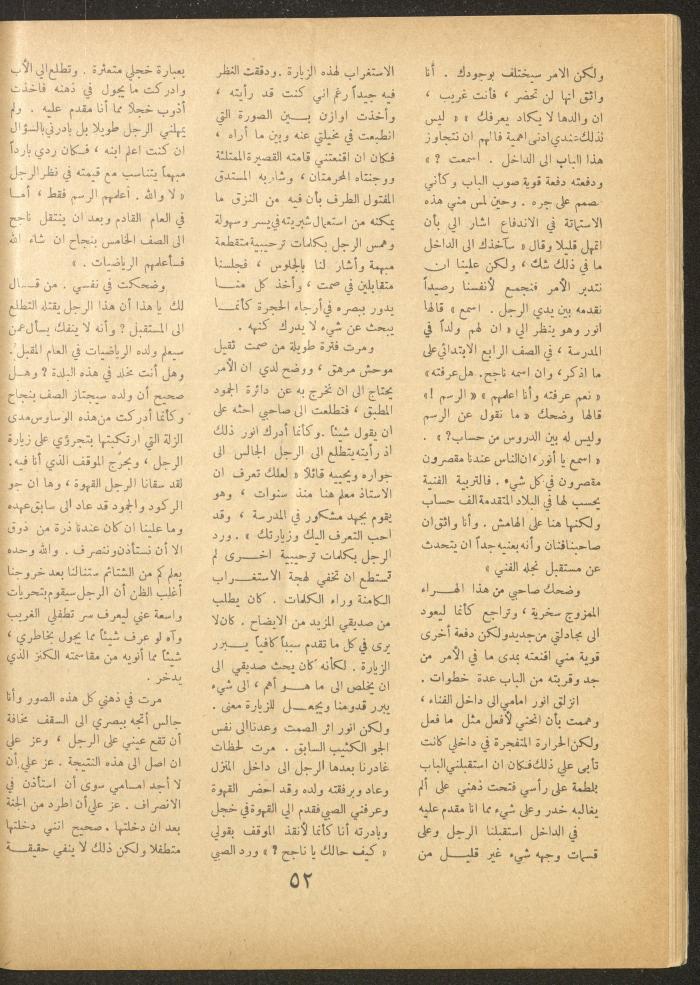 ولكن الامر سيختلف بوجودك . أنا
واثق انها لن تحضر ، فأنت غريب ،
ان والدها لا يكاد يعرفك » « ليس
لذلك عندي ادنى اهمية فالهم ان نتجاوز
هذا الباب الى الداخل . اسمعت ? »
ودفعته دفعة قوية صوب الباب وكأني
صمم على جره . وحين لمس مني هذه
الاستماتة في الاندفاع اشار الي بأن
اتمهل قليلا وقال « سآخذك الى الداخل
ما في ذلك شك ، ولكن علينا ان
نتدبر الأمر فنجمع لأنفسنا رصيداً
نقدمه بين يدي الرجل . اسمع » قالها
انور وهو ينظر الي « ان لهم ولداً في
المدرسة ، في الصف الرابع الابتدائي على
ما اذكر، وان اسمه ناجح. هل عرفته»
« نعم عرفته وأنا اعلمهم » « الرسم !»
قالها وضحك « ما نقول عن الرسم
وليس له بين الدروس من حساب?» .
« اسمع يا أنور، ان الناس عندنا مقصرون
مقصرون في كل شيء . فالتربية الفنية
يحسب لها في البلاد المتقدمة الف حساب
ولكنها هنا على الهامش . وأنا واثق ان
صاحبنا فنان وأنه يعنيه جداً ان يتحدث
عن مستقبل نجله الفني »
وضحك صاحبي من هذا الهراء
الممزوج سخرية ، وتراجع كأنما ليعود
الى مجادلتي من جديد ولكن دفعة أخرى
قوية مني اقنعته بمدى ما في الأمر من
جد وقربته من الباب عدة خطوات .
انزلق انور امامي الى داخل الفناء ،
وهممت بأن انحني لأفعل مثل ما فعل
ولكن الحرارة المتفجرة في داخلي كانت
تأبى علي ذلك فكان ان استقبلني الباب
بلطمة على رأسي فتحت ذهني على ألم
يغالبه خدر وعلى شيء مما انا مقدم عليه
في الداخل استقبلنا الرجل وعلى
قسمات وجهه شيء غير قليل من
الاستغراب لهذه الزيارة . ودققت النظر
فيه جيداً رغم اني كنت قد رأيته ،
وأخذت اوازن بين الصورة التي
انطبعت في مخيلتي عنه وبين ما أراه ،
فكان ان اقنعتني قامته القصيرة الممتلئة
ووجنتاه المحمرتان ، وشاربه المستدق
المفتول الطرف بأن فيه من النزق ما
يمكنه من استعمال شبريته في يسر وسهولة
وهمس الرجل بكلمات ترحيبية متقطعة
مبهمة وأشار لنا بالجلوس ، فجلسنا
متقابلين في صمت ، وأخذ كل منا
يدور ببصره في أرجاء الحجرة كأنما
يبحث عن شيء لا يدرك كنهه .
ومرت فترة طويلة من صمت ثقيل
موحش مرهق ، ووضح لدي ان الأمر
يحتاج الى ان نخرج به عن دائرة الجمود
المطبق ، فتطلعت الى صاحبي احثه على
ان يقول شيئاً . وكأنما أدرك انور ذلك
اذ رأيته يتطلع الى الرجل الجالس الى
جواره ويحييه قائلا « لعلك تعرف ان
الاستاذ معلم هنا منذ سنوات ، وهو
يقوم بجهد مشكور في المدرسة ، وقد
احب التعرف اليك وزيارتك » . ورد
الرجل بكلمات ترحيبية اخرى لم
تستطع ان تخفي لهجة الاستغراب
الكامنة وراء الكلمات . كان يطلب
من صديقي المزيد من الايضاح . كان لا
يرى في كل ما تقدم سبباً كافياً يبرر
الزيارة . لكأنه كان يحث صديقي الى
ان يخلص الى ما هو أهم ، الى شيء
يبرر قدومنا ويجعل للزيارة معنى .
ولكن انور اثر الصمت وعدنا الى نفس
الجو الكئيب السابق . مرت لحظات
غادرنا بعدها الرجل الى داخل المنزل
وعاد وبرفقته ولده وقد احضر القهوة
وعرفني الصبي فقدم الي القهوة في خجل
وبادرته أنا كأنما لأنقذ الموقف بقولي
« كيف حالك يا ناجح ? » ورد الصبي
بعبارة خجلى متعثرة . وتطلع الي الأب
وادركت ما يجول في ذهنه فأخذت
أذوب خجلا مما أنا مقدم عليه . ولم
يمهلني الرجل طويلا بل بادرني بالسؤال
ان كنت اعلم ابنه ، فكان ردي بارداً
مبهماً يتناسب مع قيمته في نظر الرجل
« لا والله . أعلمهم الرسم فقط ، أما
في العام القادم وبعد ان ينتقل ناجح
الى الصف الخامس بنجاح ان شاء الله
فسأعلمهم الرياضيات . »
وضحكت في نفسي . من قال
لك يا هذا أن هذا الرجل يقتله التطلع
الى المستقبل ? وأنه لا ينفك يسأل عمن
سيعلم ولده الرياضيات في العام المقبل ?
وهل أنت مخلد في هذه البلدة ? وهل
صحيح أن ولده سيجتاز الصف بنجاح
وكأنما أدركت من هذه الوساوس مدى
الزلة التي ارتكبتها بتجرؤي على زيارة
الرجل ، وبحرّج الموقف الذي أنا فيه .
لقد سقانا الرجل القهوة ، وها ان جو
الركود والجمود قد عاد الى سابق عهده
وما علينا ان كان عندنا ذرة من ذوق
الا أن نستأذن وننصرف . والله وحده
يعلم كم من الشتائم ستنالنا بعد خروجنا
أغلب الظن أن الرجل سيقوم بتحريات
واسعة عني ليعرف سر تطفلي الغريب
وآه لو عرف شيئاً مما يجول بخاطري ،
شيئاً مما أنويه من مقاسمته الكنز الذي
يدخر .
مرت في ذهني كل هذه الصور وأنا
جالس أتجه ببصري الى السقف مخافة
أن تقع عيني على الرجل ، وعز علي
ان اصل الى هذه النتيجة . عز علي أن
لا أجد امامي سوى أن استأذن في
الانصراف . عز علي أن اطرد من الجنة
بعد ان دخلتها . صحيح انني دخلتها
متطفلا ولكن ذلك لا ينفي حقيقة
٥٢